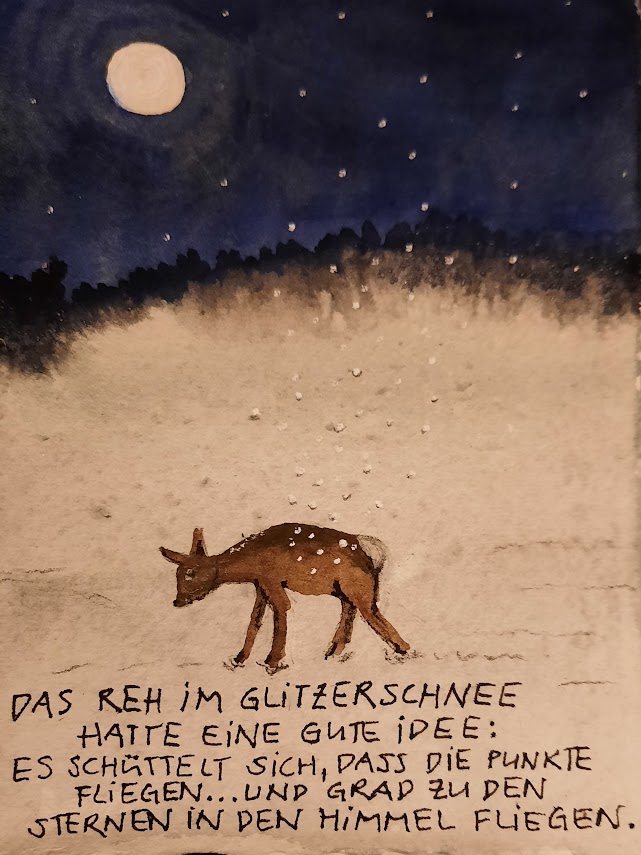 DAS REH IM GLITZERSCHNEE
HATTE EINE GUTE IDEE:
ES SCHÜTTELT SICH, DASS DIE PUNKTE
FLIEGEN...UND GRAD ZU DEN
STERNEN IN DEN HIMMEL FLIEGEN.